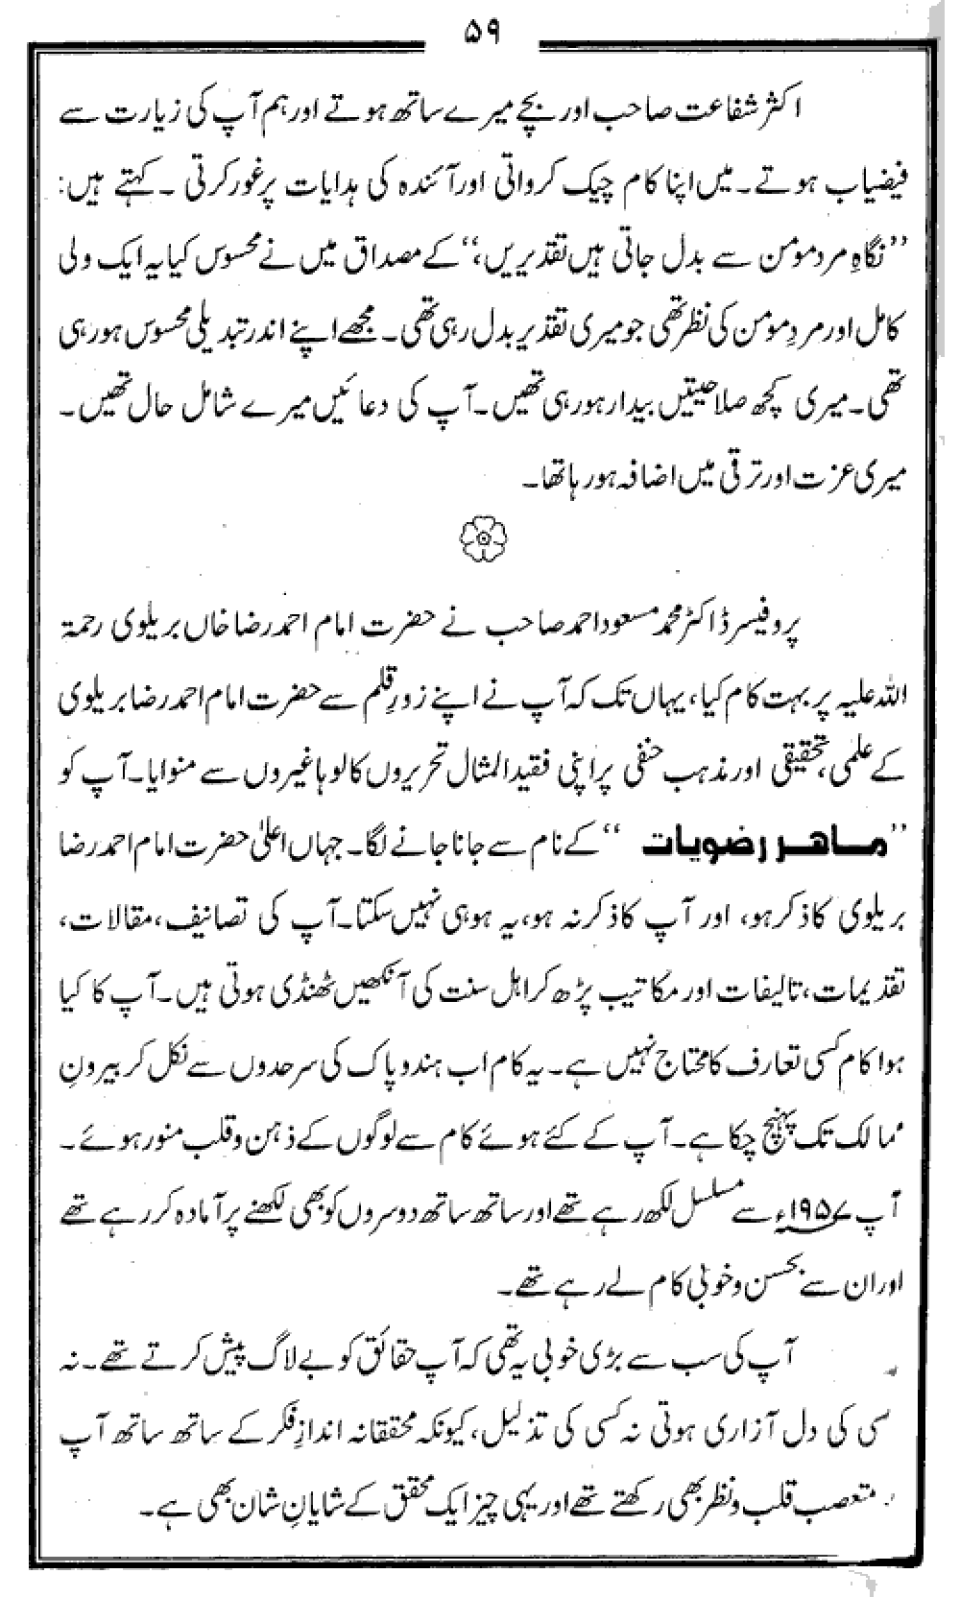 ۵۹
اکثر شفاعت صاحب اور بچے میرے ساتھ ہوتے اور ہم آپ کی زیارت سے
فیضیاب ہوتے۔ میں اپنا کام چیک کرواتی اور آئندہ کی ہدایات پر غور کرتی ۔ کہتے ہیں:
”نگاہِ مرد مومن سے بدل جاتی ہیں تقدیریں،“ کے مصداق میں نے محسوس کیا یہ ایک ولی
کامل اور مردِ مومن کی نظر تھی جو میری تقدیر بدل رہی تھی۔ مجھے اپنے اندر تبدیلی محسوس ہو رہی
تھی۔ میری کچھ صلاحیتیں بیدار ہو رہی تھیں۔ آپ کی دعائیں میرے شامل حال تھیں۔
میری عزت اور ترقی میں اضافہ ہو رہا تھا۔
پروفیسر ڈاکٹر محمد مسعود احمد صاحب نے حضرت امام احمد رضا خاں بریلوی رحمۃ
اللہ علیہ پر بہت کام کیا، یہاں تک کہ آپ نے اپنے زورِ قلم سے حضرت امام احمد رضا بریلوی
کے علمی، تحقیقی اور مذہب حنفی پر اپنی فقید المثال تحریروں کا لوہا غیروں سے منوایا۔ آپ کو
”ماہر رضویات“ کے نام سے جانا جانے لگا۔ جہاں اعلیٰ حضرت امام احمد رضا
بریلوی کا ذکر ہو، اور آپ کا ذکر نہ ہو، یہ ہو ہی نہیں سکتا۔ آپ کی تصانیف، مقالات،
تقدیمات، تالیفات اور مکاتیب پڑھ کر اہل سنت کی آنکھیں ٹھنڈی ہوتی ہیں۔ آپ کا کیا
ہوا کام کسی تعارف کا محتاج نہیں ہے۔ یہ کام اب ہند و پاک کی سرحدوں سے نکل کر بیرونِ
ممالک تک پہنچ چکا ہے۔ آپ کے کئے ہوئے کام سے لوگوں کے ذہن و قلب منور ہوئے۔
آپ ۱۹۵۷ء سے مسلسل لکھ رہے تھے اور ساتھ ساتھ دوسروں کو بھی لکھنے پر آمادہ کر رہے تھے
اور ان سے بحسن و خوبی کام لے رہے تھے۔
آپ کی سب سے بڑی خوبی یہ تھی کہ آپ حقائق کو بے لاگ پیش کرتے تھے۔ نہ
سی کی دل آزاری ہوتی نہ کسی کی تذلیل، کیونکہ محققانہ اندازِ فکر کے ساتھ ساتھ آپ
متعصب قلب و نظر بھی رکھتے تھے اور یہی چیز ایک محقق کے شایانِ شان بھی ہے۔